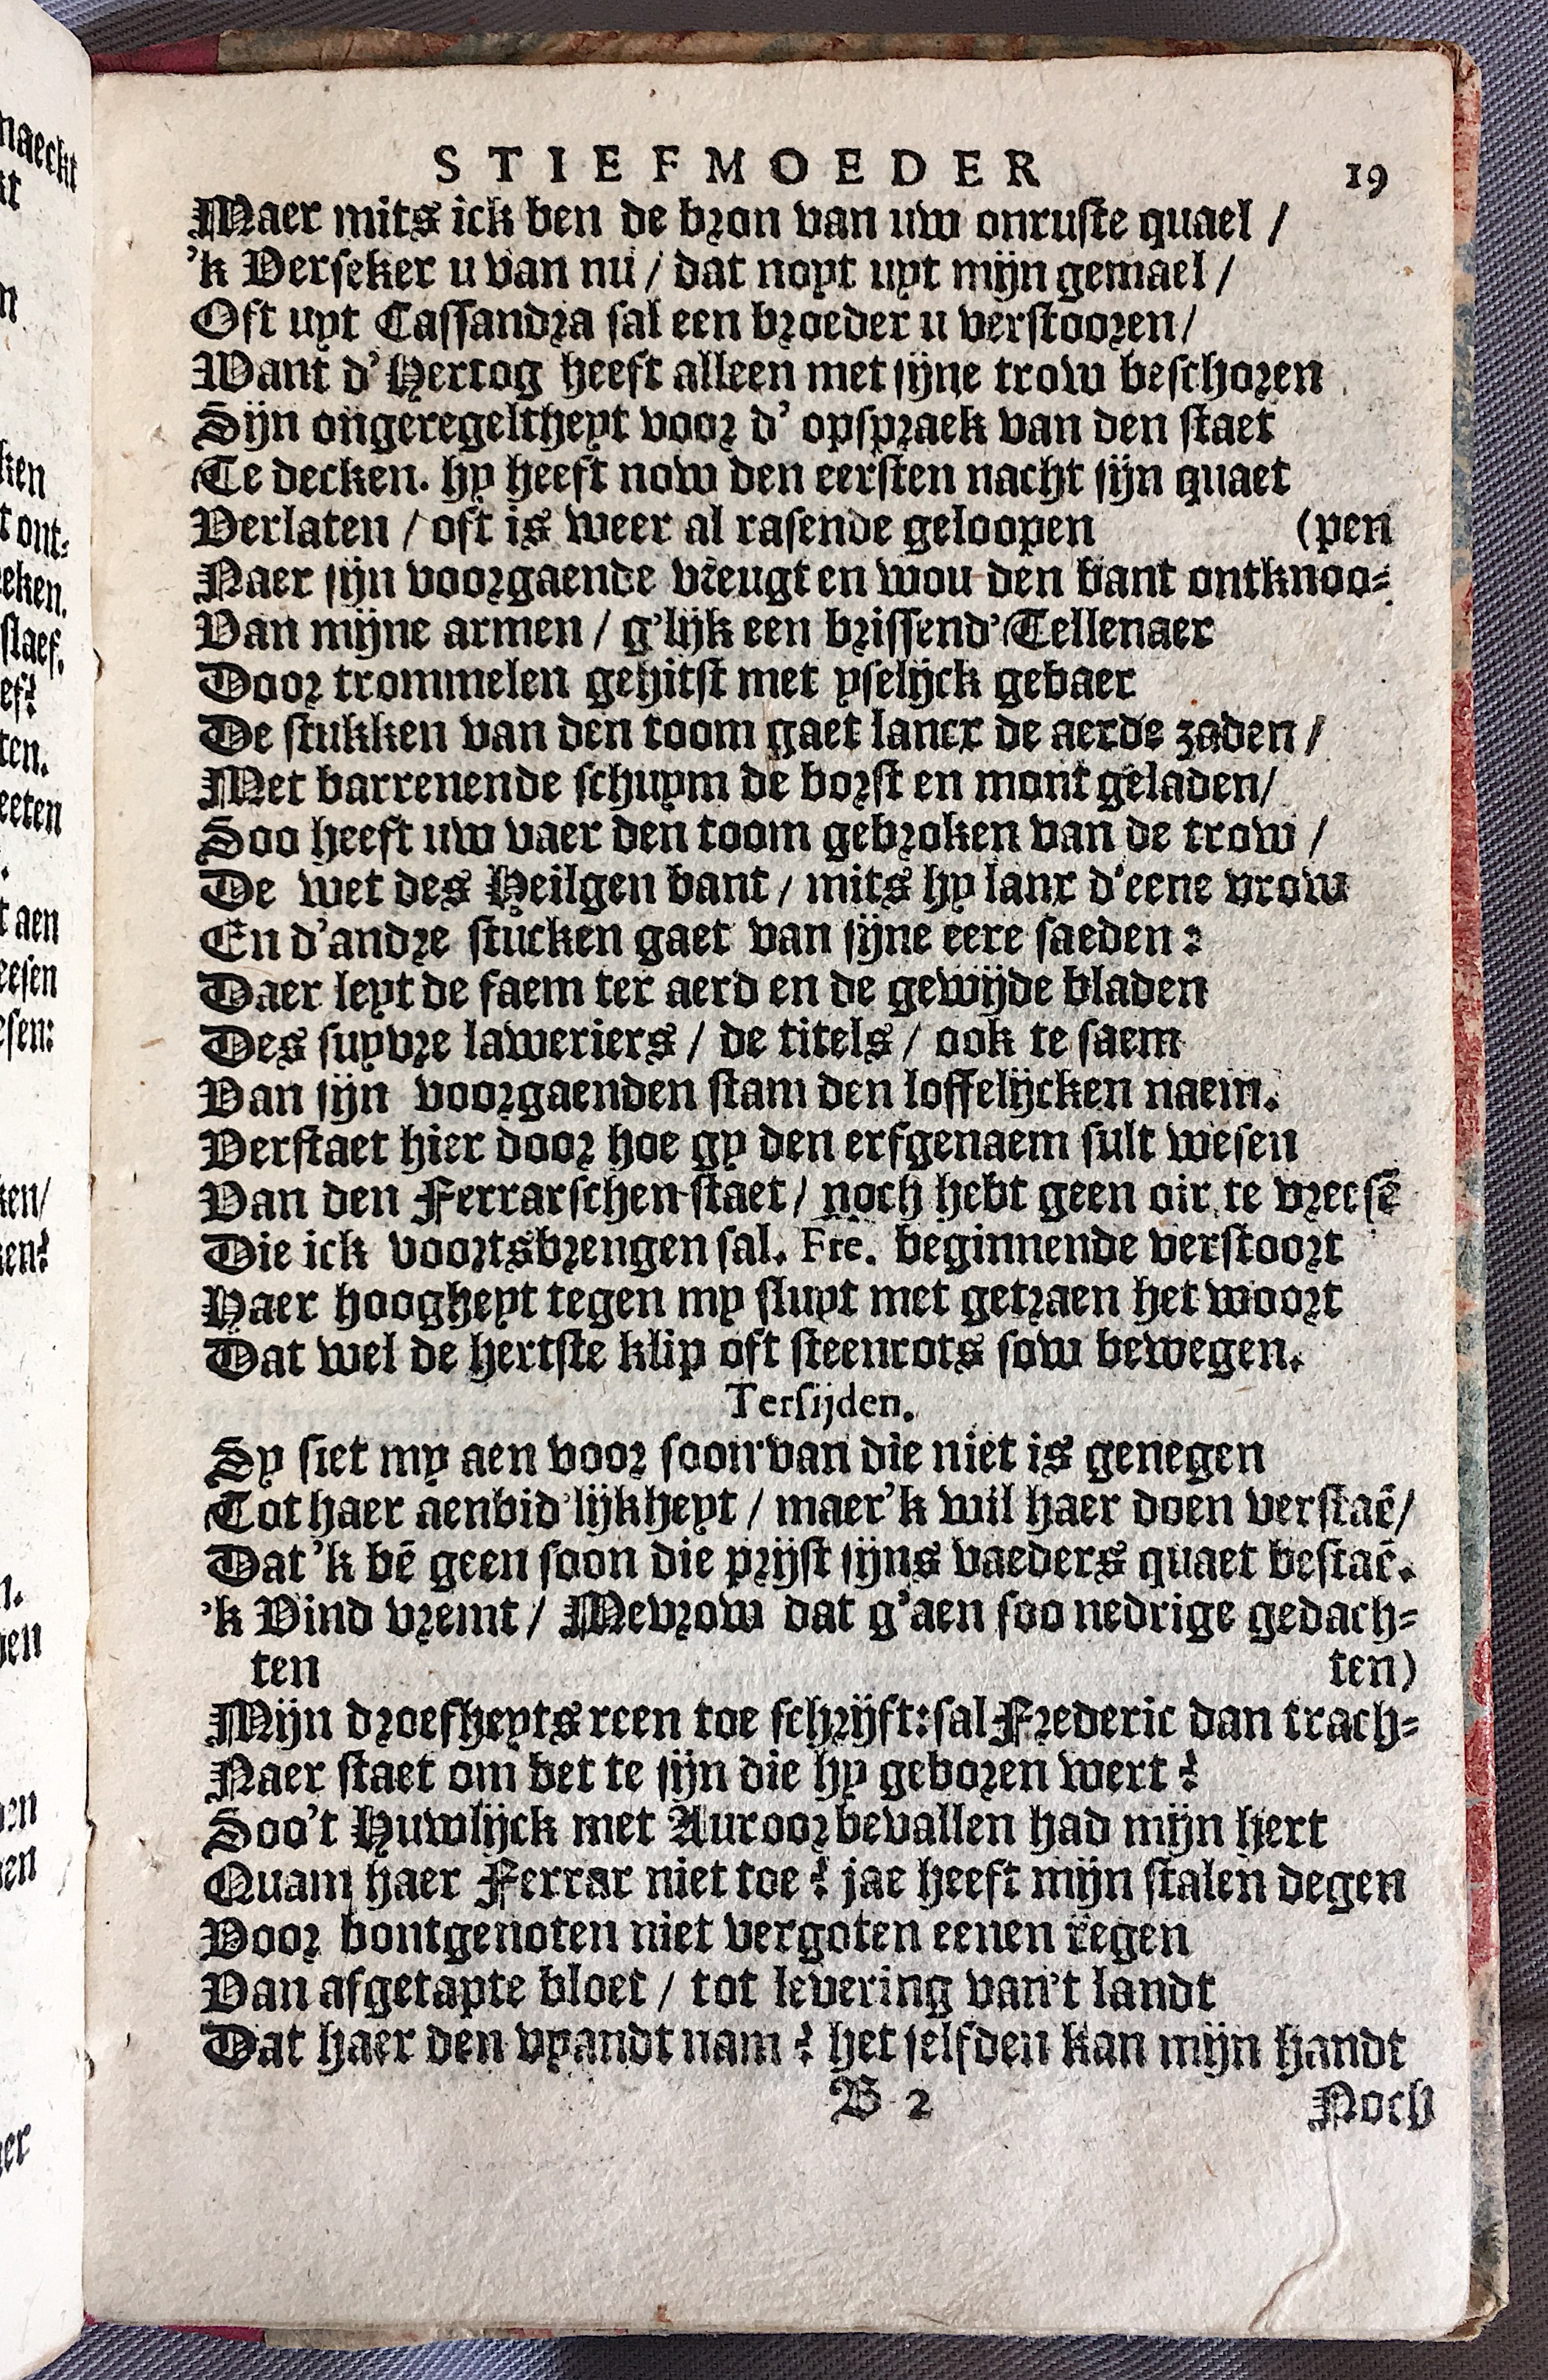 STIEFMOEDER 19
Maer mits ick ben de bron van uw onruste quael /
'k Verseker u van nu / dat noyt uyt mijn gemael /
Oft uyt Cassandra sal een broeder u verstooren /
Want d'Hertog heeft alleen met sijne trow beschoren
Sijn ongeregeltheyt voor d' opspraek van den staet
Te decken. hy heeft now den eersten nacht sijn quaet
Verlaten / oft is weer al rasende geloopen (pen
Naer sijn voorgaende vreugt en wou den bant ontknoo-
Van mijne armen / g'lijk een brissend' Tellenaer
Door trommelen gehitst met yselijck gebaer
De stukken van den toom gaet lancx de aerde zaden /
Met barrenende schuym de borst en mont geladen /
Soo heeft uw vaer den toom gebroken van de trow /
De wet des Heilgen bant / mits hy lanx d'eene vrow
En d'andre stucken gaet van sijne eere saeden:
Daer leyt de faem ter aerd en de gewijde bladen
Des suyvre laweriers / de titels / ook te saem
Van sijn voorgaenden stam den loffelijcken naem.
Verstaet hier door hoe gy den erfgenaem sult wesen
Van den Ferrarschen staet / noch hebt geen oir te vreesē
Die ick voortsbrengen sal. Fre. beginnende verstoort
Haer hoogheyt tegen my sluyt met getraen het woort
Dat wel de hertste klip oft steenrots sow bewegen.
Tersijden.
Sy siet my aen voor soon van die niet is genegen
Tot haer aenbid'lijkheyt / maer 'k wil haer doen verstaē /
Dat 'k bē geen soon die prijst sijns vaeders quaet bestaē.
'k Vind vremt / Mevrow dat g'aen soo nedrige gedach-
ten ten)
Mijn droefheyts reen toe schrijft: sal Frederic dan trach-
Naer staet om bet te sijn die hy geboren wert?
Soo't Huwlijck met Auroor bevallen had mijn hert
Quam haer Ferrar niet toe? jae heeft mijn stalen degen
Voor bontgenoten niet vergoten eenen regen
Van afgetapte bloet / tot levering van't landt
Dat haer den vyandt nam? het selfden kan mijn handt
B 2 Noch